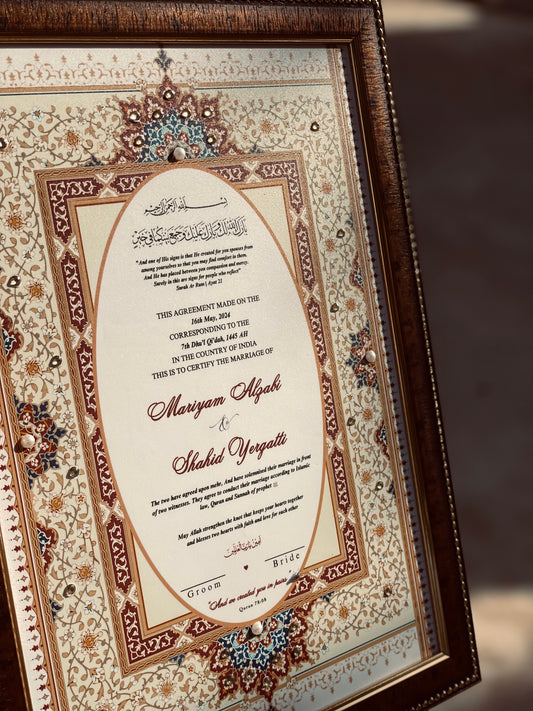 بسم الله الرحمن الرحيم
بارك الله لك وبارك عليك وجمع بينكما في خير
"And one of His signs is that He created for you spouses from
among yourselves so that you may find comfort in them.
And He has placed between you compassion and mercy.
Surely in this are signs for people who reflect"
Surah Ar Rum | Ayat 21
THIS AGREEMENT MADE ON THE
16th May, 2024
CORRESPONDING TO THE
7th Dhu'l Qi'dah, 1445 AH
IN THE COUNTRY OF INDIA
THIS IS TO CERTIFY THE MARRIAGE OF
Mariyam Alzabi
&
Shahid Yergatti
The two have agreed upon mehr, And have solemnised their marriage in front
of two witnesses. They agree to conduct their marriage according to Islamic
law, Quran and Sunnah of prophet ﷺ
May Allah strengthen the knot that keeps your hearts together
and blesses two hearts with faith and love for each other
آمين يا رب العالمين
Groom Bride
"And we created you in pairs"
Quran 78:08